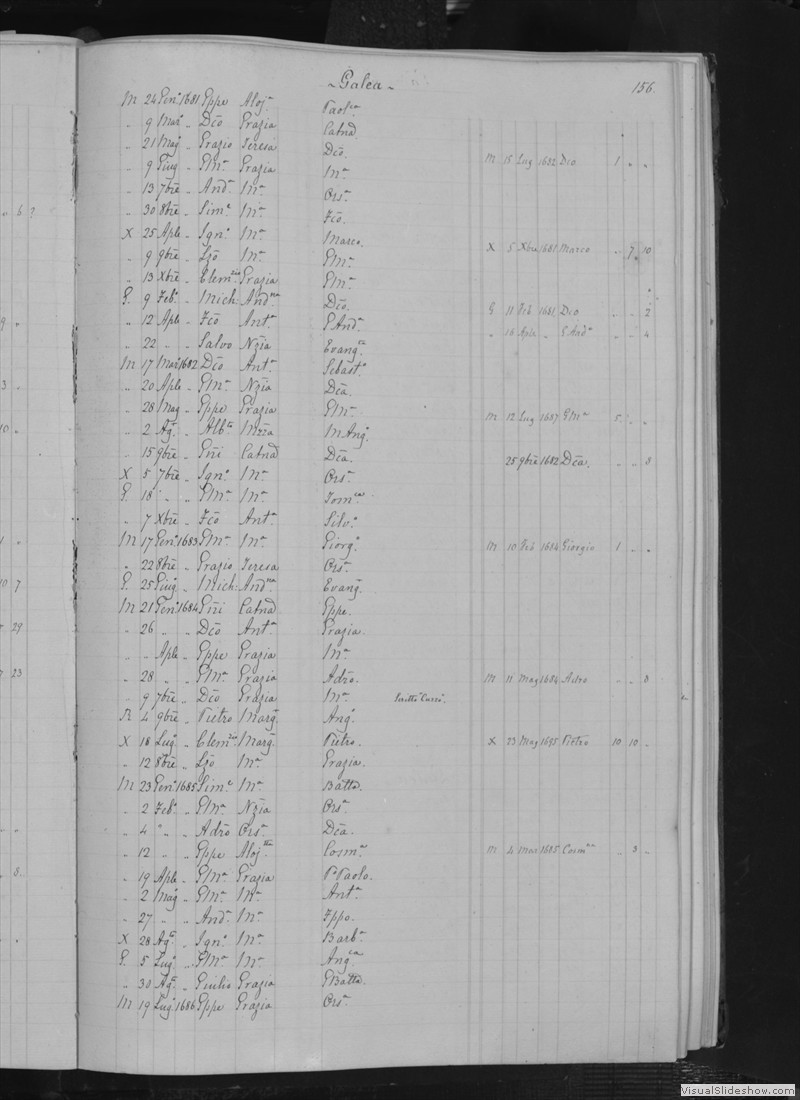 ~ Galea ~ 156.
M 24 Gen° 1681 Gppe Aloja Paola
" 9 Mar° " Dco Grazia Catnd.
" 21 Mag° " Grazio Teresa Dco.
" 9 Giug " GMa Grazia Ma M 15 Lug 1682 Dco 1 " "
" 13 7bre " Anda Ma Orsa
" 30 8bre " Sime Ma Fco.
X 25 Aple " Igno Ma Marco. X 5 Xbre 1681 Marco " 7 10
" 9 9bre " Lzo Ma GMa
" 13 Xbre " Clem Grazia GMa
G. 9 Feb° " Mich: Andna Dco. G 11 Feb 1681 Dco " " 2
" 12 Aple " Fco Anta GAnda " 16 Aple " GAnda " " 4
" 22 " " Salvo Nzia Evanga
M 17 Mar° 1682 Dco Anta Sebasto
" 20 Aple " GMa Nzia Dca.
" 28 Mag " Gppe Grazia GMa M 12 Lug 1687 GMa 5 " "
" 2 Ag° " Alb Mzia MAng°
" 15 9bre " Gni Catnd Dca. 25 9bre 1682 Dca. " " 8
X 5 7bre " Igno Ma Orsa
G. 18 " " GMa Ma Tomca
" 7 Xbre " Fco Anta Silvo
M 17 Gen° 1683 GMa Ma Giorg° M 10 Feb 1684 Giorgio 1 " "
" 22 8bre " Grazio Teresa Orsa
G. 25 Giug " Mich: Andna Evang
M 21 Gen° 1684 Gni Catnd Gppe.
" 26 " " Dco Anta Grazia.
" " Aple " Gppe Grazia Ma
" 28 " " GMa Grazia Adro. M 11 Mag 1684 Adro " " 8
" 9 7bre " Dco Grazia Ma
R 4 9bre " Pietro Marg Ang°
X 18 Lug° " Clem Marg Pietro. X 23 Mag 1695 Pietro 10 10 "
" 12 8bre " Lzo Ma Grazia.
M 23 Gen° 1685 Sime Ma Batta.
" 2 Feb° " GMa Nzia Orsa
" 4 " " Adro Orsa Dca.
" 12 " " Gppe Aloj Cosma M 4 Mar 1685 Cosm " 3 "
" 19 Aple " GMa Grazia P Paolo.
" 2 Mag " GMa Ma Anta
" 27 " " Anda Ma Fppo.
X 28 Ag° " Igno Ma Barba
G. 5 Lug° " GMa Ma Angca
" 30 Ag° " Giulio Grazia GBatta.
M 19 Lug° 1686 Gppe Grazia Orsa
VisualSlideshow.com